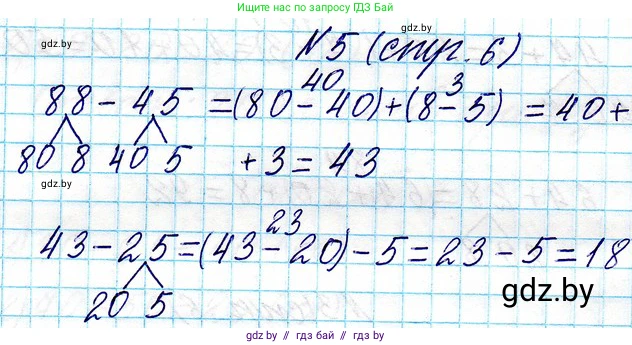 Ищите нас по запросу ГДЗ Бай
gdz.by
№5 (стр. 6)
40 3
88 - 45 = (80 - 40) + (8 - 5) = 40 +
80 8 40 5 + 3 = 43
gdz.by
23
43 - 25 = (43 - 20) - 5 = 23 - 5 = 18
20 5
gdz.by
gdz.by // гдз бай // гдз.by